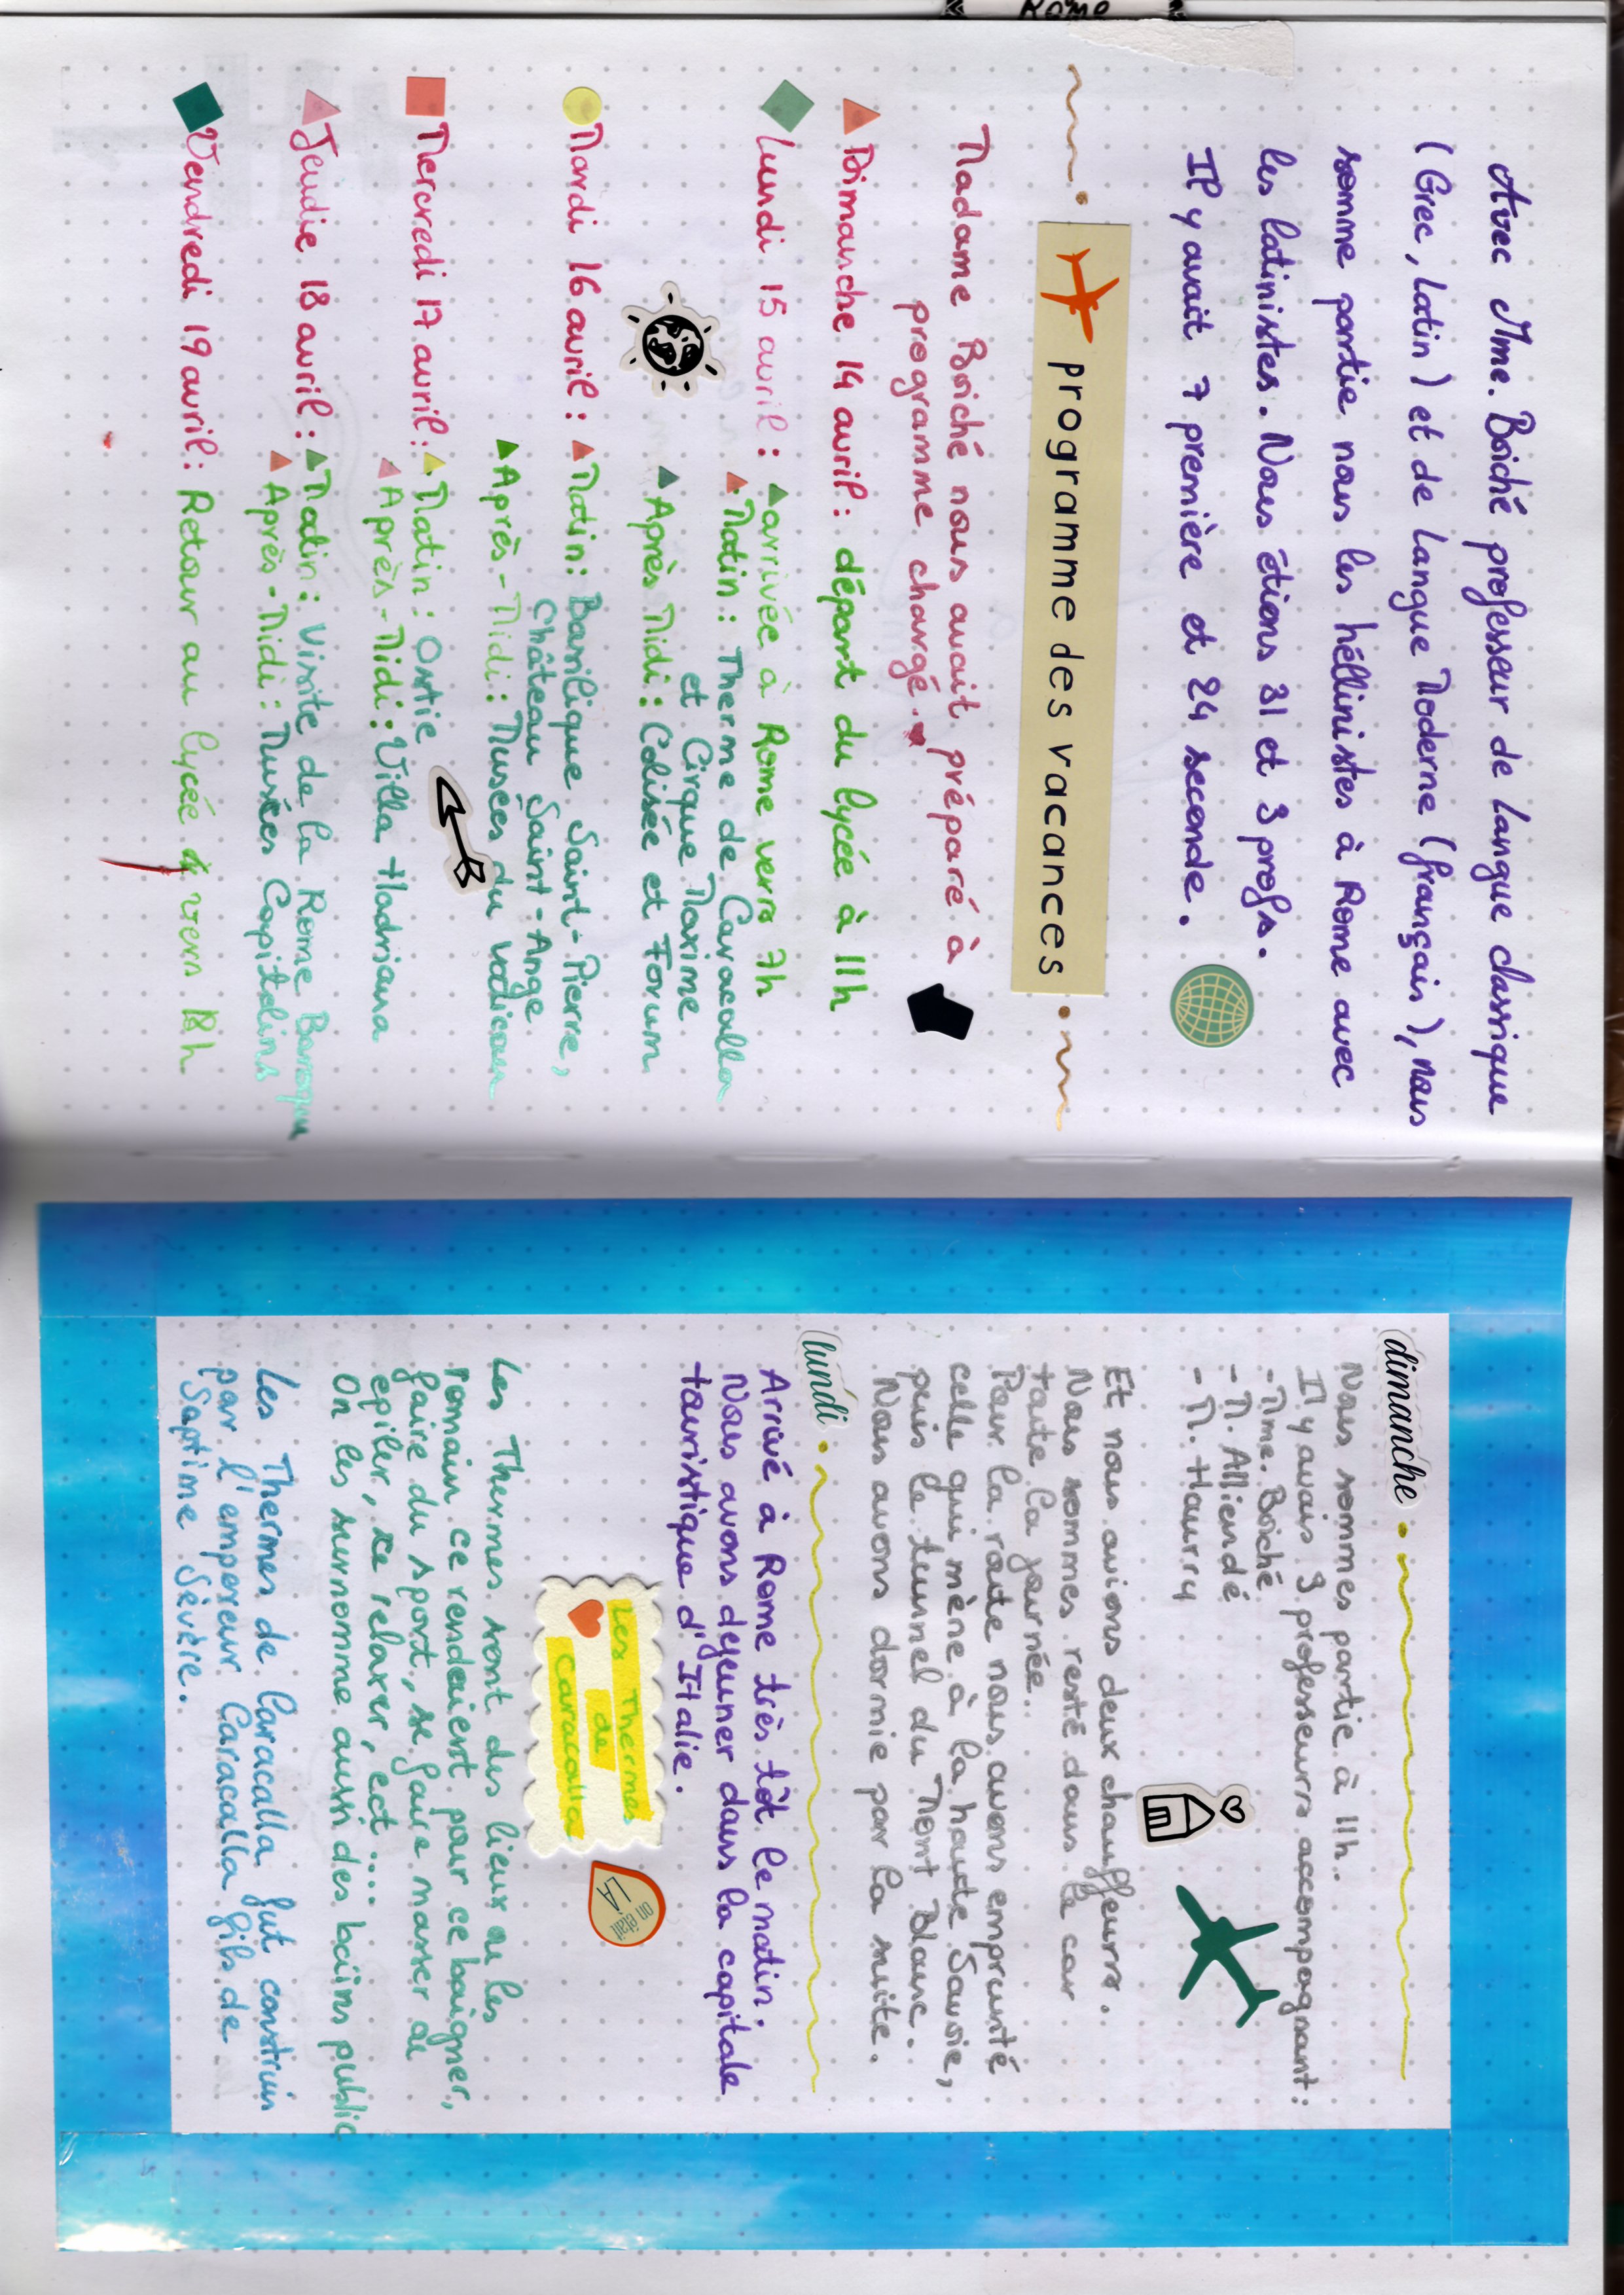 Avec Mme. Boiché professeur de Langue classique
(Grec, Latin) et de Langue Moderne (français), nous
somme partie nous les héllinistes à Rome avec
les latinistes. Nous étions 31 et 3 profs.
Il y avait 7 première et 24 seconde.
programme des vacances
Madame Boiché nous avait préparé à
programme chargé.
Dimanche 14 avril : départ du lycée à 11h
Lundi 15 avril : arrivée à Rome vers 7h
Matin : Therme de Caracalla
et Cirque Maxime
Après Midi : Colisée et Forum
Mardi 16 avril : Matin : Basilique Saint-Pierre,
Château Saint-Ange
Après-Midi : Musées du vatican
Mercredi 17 avril : Matin : Ostie
Après-Midi : Villa Hadriana
Jeudie 18 avril : Matin : Visite de la Rome Baroque
Après-Midi : Musées Capitolins
Vendredi 19 avril : Retour au lycée vers 18h
Rome
dimanche
Nous sommes partie à 11h.
Il y avais 3 professeurs accompagnant :
- Mme. Boiché
- M. Alliendé
- M. Haurry
Et nous avions deux chauffeurs.
Nous sommes resté dans le car
toute la journée.
Pour la route nous avons emprunté
celle qui mène à la haute Savoie,
puis le tunnel du Mont Blanc.
Nous avons dormie par la suite.
lundi
Arrivé à Rome très tôt le matin.
Nous avons dejeuner dans la capitale
touristique d'Italie.
Les Thermes
de
Caracalla
on était
LÀ
Les Thermes sont des lieux ou les
romain ce rendaient pour ce baigner,
faire du sport, se faire masser ou
epiler, se relaxer, ect ....
On les surnomme aussi des bains public
Les Thermes de Caracalla fut construis
par l'empereur Caracalla fils de
Septime Sèvère.